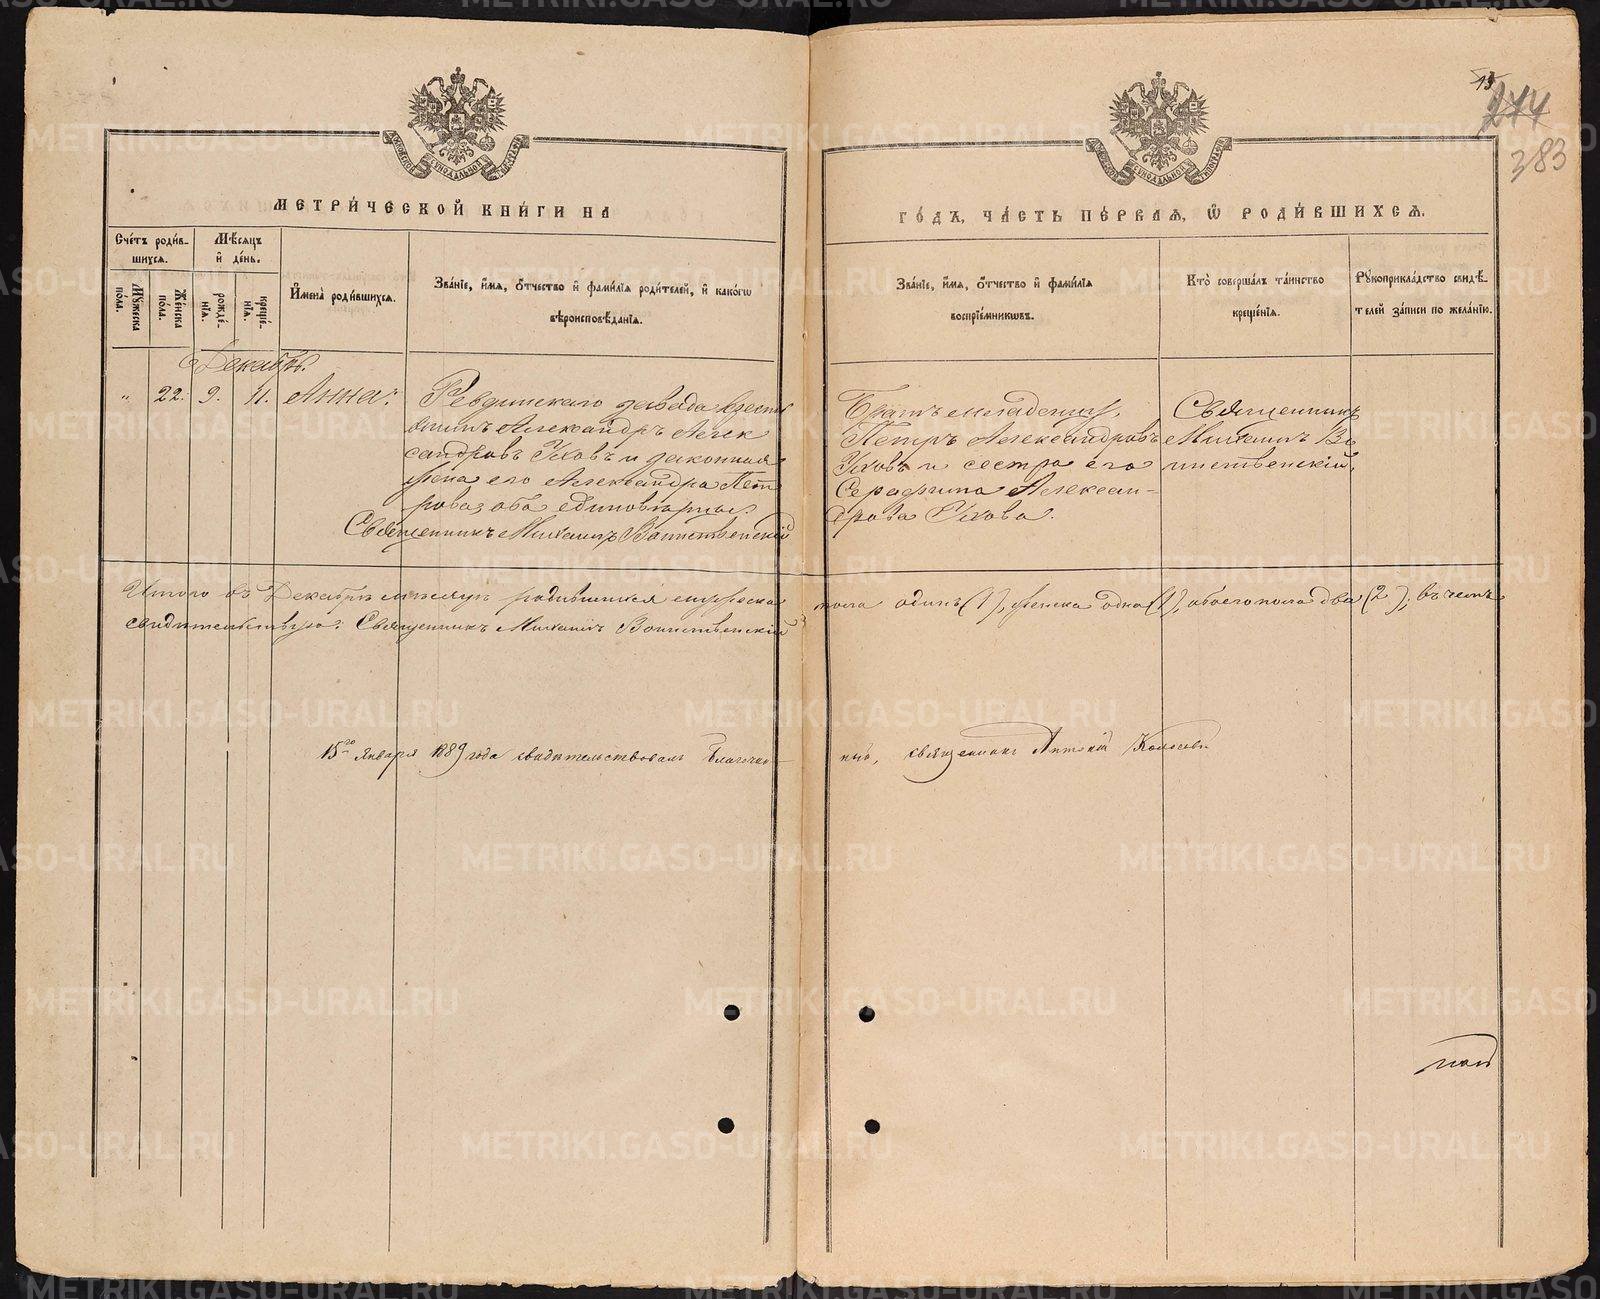 13
244
383
МЕТРИ́ЧЕСКОЙ КНИ́ГИ НА
ГО́ДЪ, ЧА́СТЬ ПЕ́РВАЯ, Ѡ РОДИ́ВШИХСЯ.
Сче́тъ роди́в-
шихся.
Мѣ́сяцъ
и҆ де́нь.
Мꙋжеска
по́ла.
Же́нска
по́ла.
рожде́-
нїя.
креще́-
нїя.
И҆мена̀ роди́вшихся.
Зва́нїе, и҆́мя, ѻ҆́тчество и҆ фами́лїя роди́телей, и҆ како́гѡ
вѣроисповѣ́данїя.
Зва́нїе, и҆́мя, ѻ҆́тчество и҆ фами́лїя
воспрїе́мникѡвъ.
Кто̀ соверша́лъ та́инство
креще́нїя.
Рꙋкоприкла́дство свидѣ́-
телей за́писи по жела́нїю.
Декабрь.
" 22. 9. 11. Анна:
Ревдинскаго завода крестья
нинъ Александръ Алек
сандровъ Уховъ и законная
жена его Александра Пет
рова; оба единовѣрцы.
Священникъ Михаилъ Воинственскій
Братъ младенцу,
Петръ Александровъ
Уховъ и сестра его
Серафима Алексан-
дрова Ухова.
Священникъ
Михаилъ Во
инственскій.
Итого въ Декабрѣ мѣсяцѣ родившихся мужеска пола одинъ (1), женска одна (1), обоего пола два (2); въ чемъ
свидѣтельствую: Священникъ Михаилъ Воинственскій
15го Января 1889 года свидѣтельствовалъ Благочин-
ный, священникъ Антоній